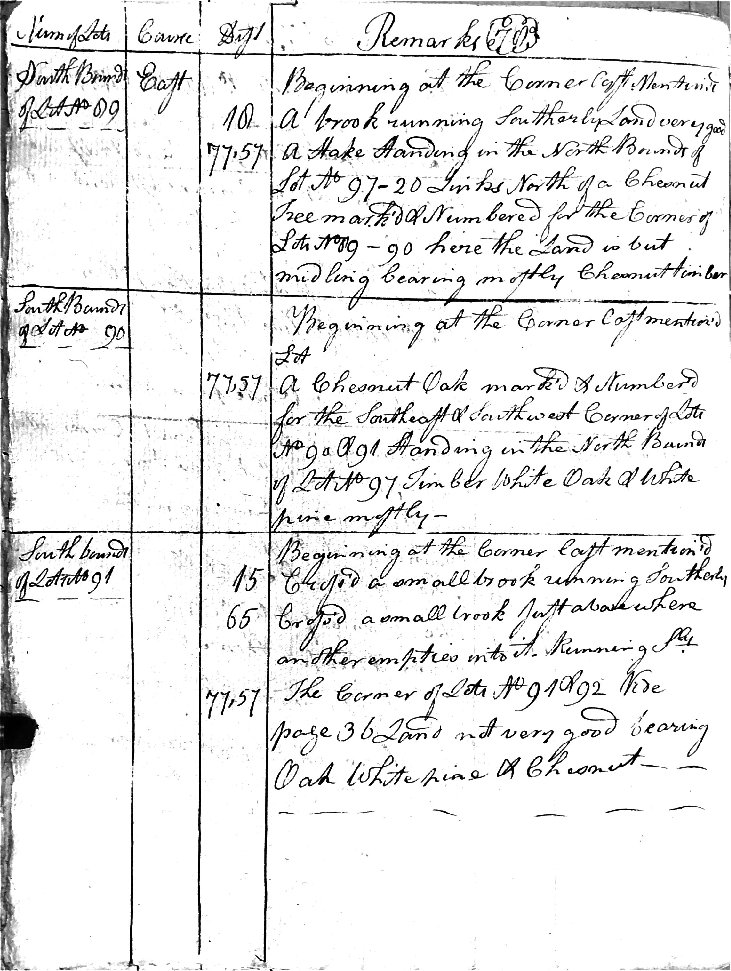 Num of Lots Course Dist Remarks 73
South Bound East Beginning at the Corner last Mention'd
of Lot No 89
18 A brook running Southerly Land very good
77,57 A Stake Standing in the North Bounds of
Lot No 97 - 20 Links North of a Chesnut
Tree mark'd & Numbered for the Corner of
Lots No 89 - 90 here the Land is but
midling bearing mostly Chesnut timber
South Bounds
of Lot No 90
Beginning at the Corner last mention'd
Lot
77,57 A Chesnut Oak mark'd & Number'd
for the Southeast & Southwest Corner of Lots
No 90 & 91 Standing in the North Bounds
of Lot No 97 Timber White Oak & White
pine mostly -
South bounds
of Lot No 91
Beginning at the Corner last mention'd
15 Cross'd a small brook running Southerly
65 Cross'd a small brook Just above where
another empties into it. Running Sly
77,57 The Corner of Lots No 91 & 92 Vide
page 36 Land not very good bearing
Oak White pine & Chesnut - -